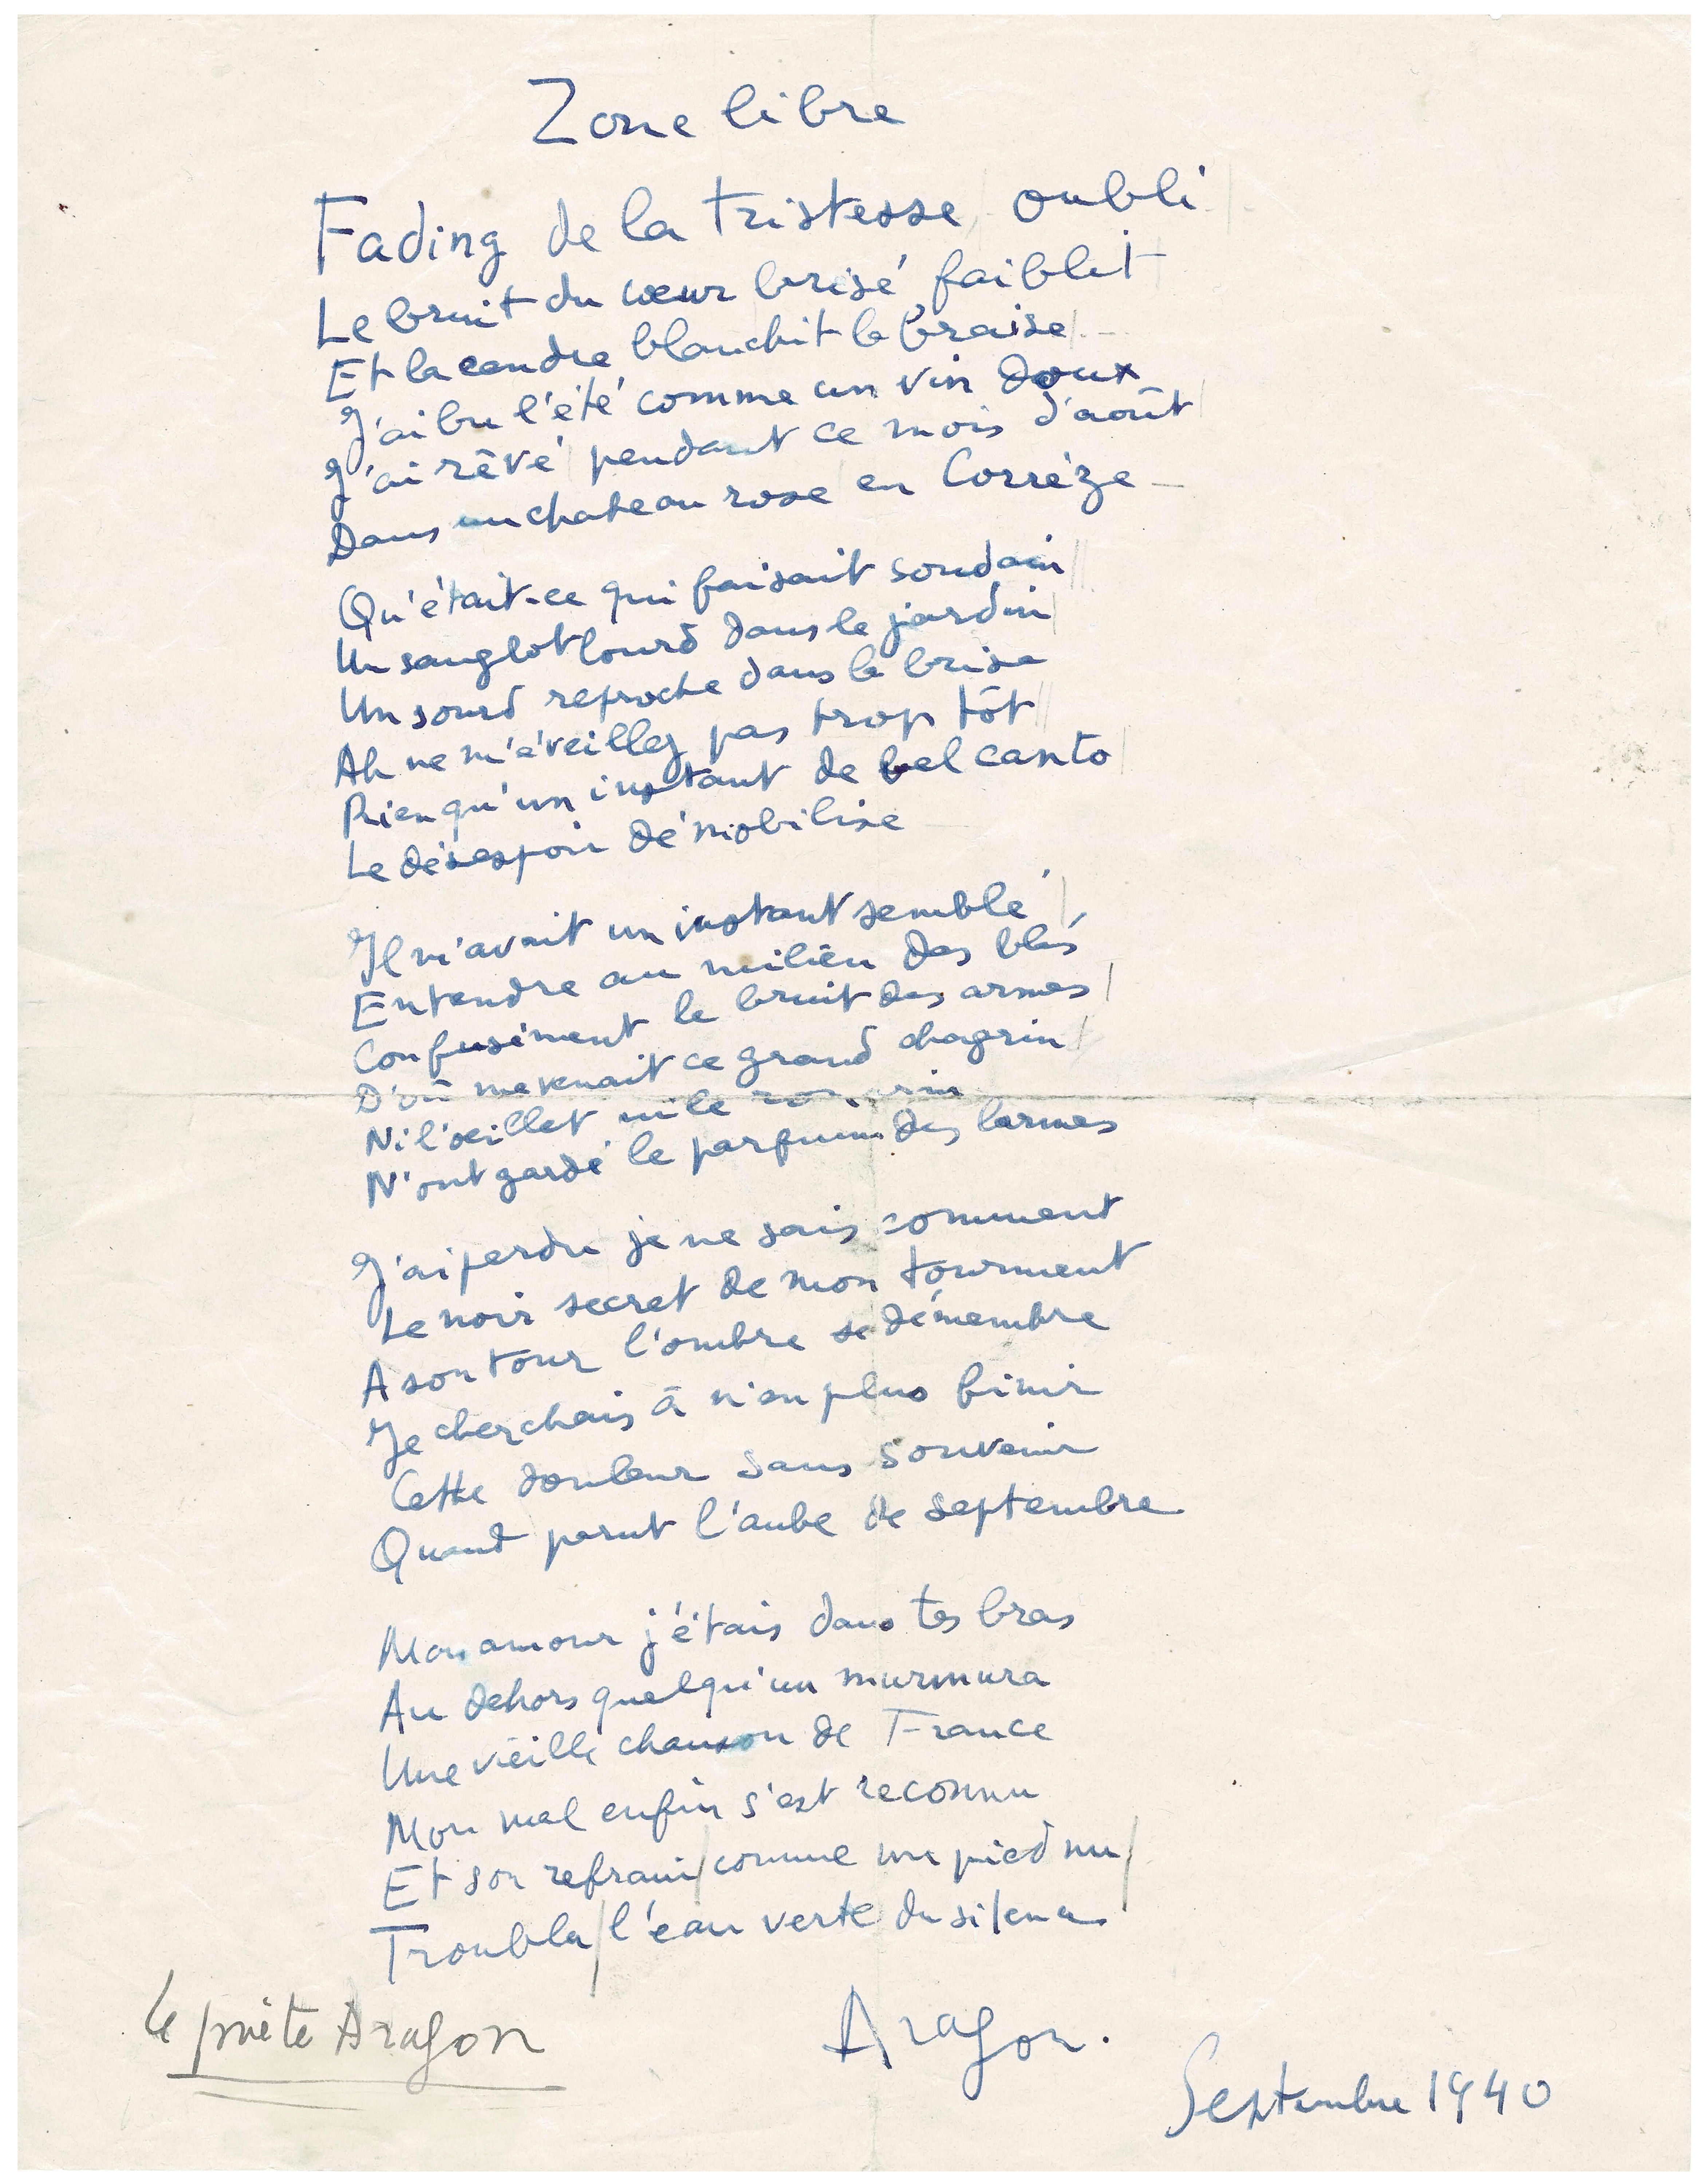 Zone libre
Fading de la tristesse oubli
Le bruit du cœur brisé faiblit
Et la cendre blanchit la braise
J'ai bu l'été comme un vin doux
J'ai rêvé pendant ce mois d'août
Dans un chateau rose en Corrèze
Qu'était-ce qui faisait soudain
Un sanglot lourd dans le jardin
Un sourd reproche dans la brise
Ah ne m'éveillez pas trop tôt
Rien qu'un instant de bel canto
Le désespoir démobilise
Il m'avait un instant semblé
Entendre au milieu des blés
Confusément le bruit des armes
D'où me venait ce grand chagrin
Ni l'œillet ni le
N'ont gardé le parfum des larmes
J'ai perdu je ne sais comment
Le noir secret de mon tourment
A son tour l'ombre se démembre
Je cherchais à n'en plus finir
Cette douleur sans souvenir
Quand parut l'aube de septembre
Mon amour j'étais dans tes bras
Au dehors quelqu'un murmura
Une vieille chanson de France
Mon mal enfin s'est reconnu
Et son refrain comme un pied nu
Troubla l'eau verte du silence
Aragon.
Le poète Aragon
Septembre 1940